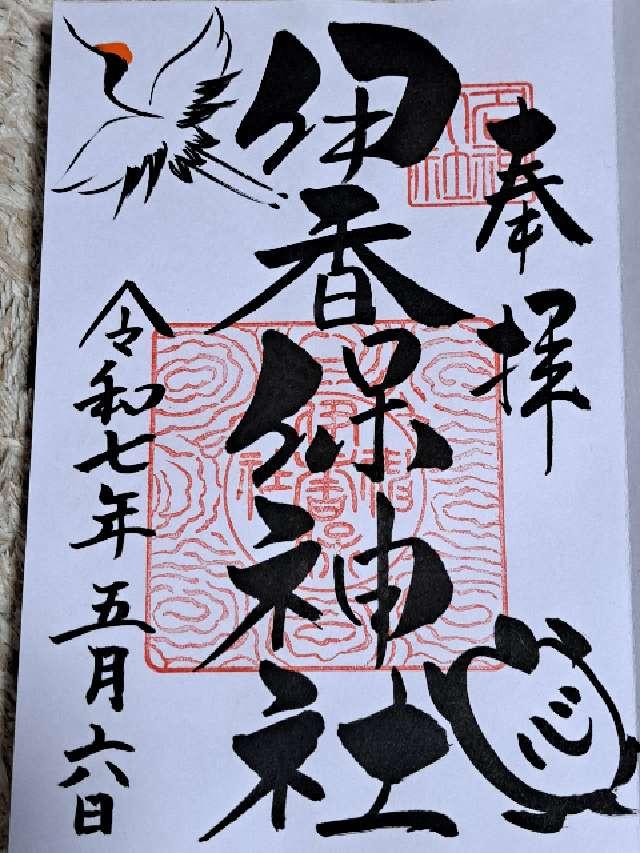 奉拝
伊香保神社
令和七年五月六日
心